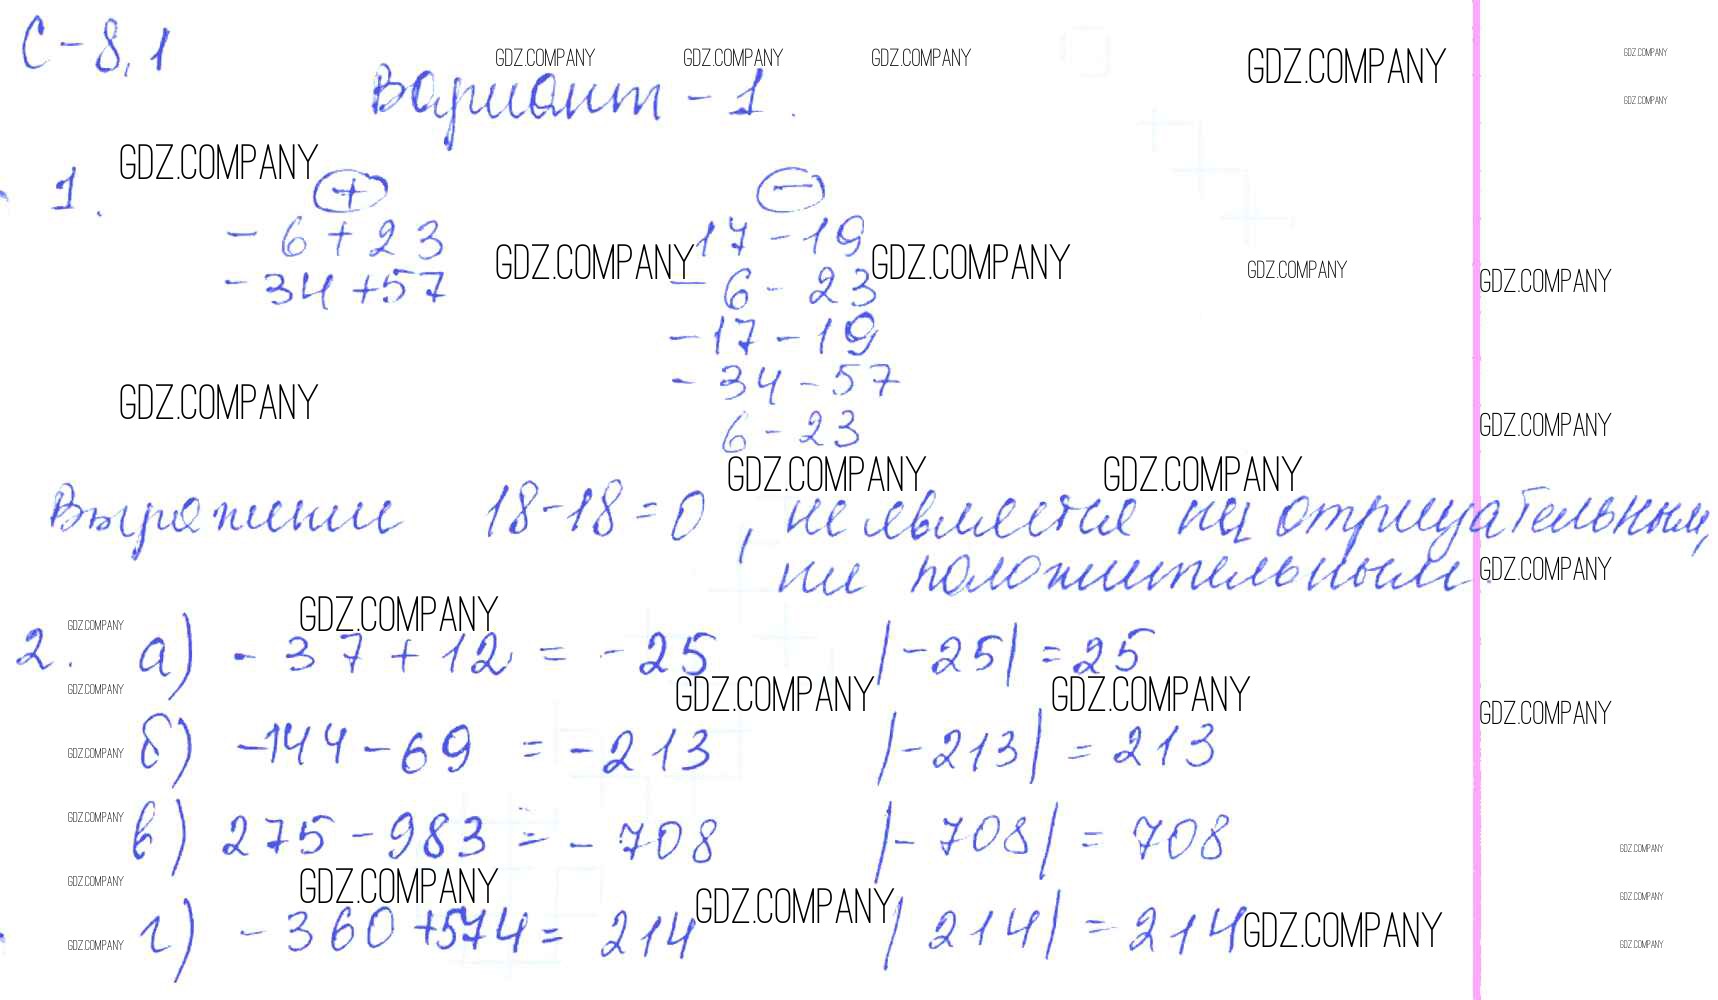 С-8,1
GDZ.COMPANY GDZ.COMPANY GDZ.COMPANY GDZ.COMPANY GDZ.COMPANY
Вариант - 1.
GDZ.COMPANY
GDZ.COMPANY
1. + −
-6+23 17-19
GDZ.COMPANY GDZ.COMPANY GDZ.COMPANY GDZ.COMPANY
-34+57 -6-23
-17-19
-34-57
GDZ.COMPANY GDZ.COMPANY
6-23
GDZ.COMPANY GDZ.COMPANY
Выражение 18-18=0, не является ни отрицательным,
ни положительным.
GDZ.COMPANY
GDZ.COMPANY GDZ.COMPANY
2. а) -37+12 = -25 |-25| = 25
GDZ.COMPANY GDZ.COMPANY GDZ.COMPANY GDZ.COMPANY
б) -144-69 = -213 |-213| = 213
GDZ.COMPANY
GDZ.COMPANY
в) 275-983 = -708 |-708| = 708
GDZ.COMPANY
GDZ.COMPANY GDZ.COMPANY GDZ.COMPANY GDZ.COMPANY
г) -360+574 = 214 |214| = 214
GDZ.COMPANY GDZ.COMPANY GDZ.COMPANY